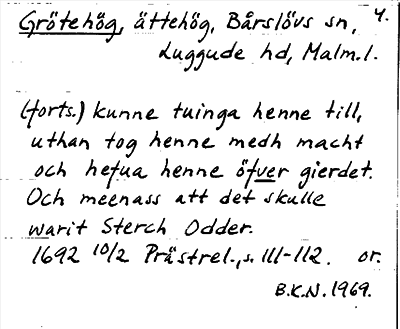 Grötehög, ättehög, Bårslövs sn, 4.
Luggude hd, Malm. l.
(forts.) kunne tuinga henne till,
uthan tog henne medh macht
och hefua henne öfver gierdet.
Och meenass att det skulle
warit Sterch Odder.
1692 10/2 Prästrel., s. 111-112. or.
B.K.N. 1969.